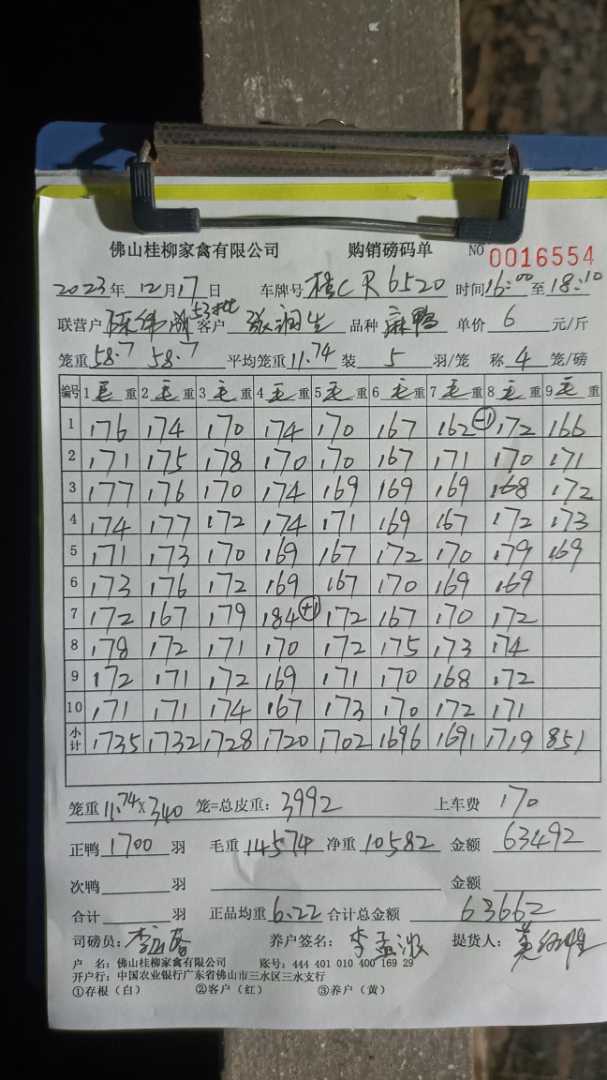 佛山桂柳家禽有限公司 购销磅码单 NO 0016554
2023年 12月17日 车牌号 桂CR6520 时间16:00至18:10
联营户 53批 客户 张润生 品种 麻鸭 单价 6 元/斤
笼重 58.7 58.7 平均笼重 11.74 装 5 羽/笼 称 4 笼/磅
编号 1毛重 2毛重 3毛重 4毛重 5毛重 6毛重 7毛重 8毛重 9毛重
1 176 174 170 174 170 167 162 -1 172 166
2 171 175 178 170 170 167 171 170 171
3 177 176 170 174 169 169 169 168 172
4 174 177 172 174 171 169 167 172 173
5 171 173 170 169 167 172 170 179 169
6 173 176 172 169 167 170 169 169
7 172 167 179 184 +1 172 167 170 172
8 178 172 171 170 172 175 173 174
9 172 171 172 169 171 170 168 172
10 171 171 174 167 173 170 172 171
小计 1735 1732 1728 1720 1702 1696 1691 1719 851
笼重 11.74×340 笼=总皮重: 3992 上车费 170
正鸭 1700 羽 毛重 14574 净重 10582 金额 63492
次鸭 羽 金额
合计 羽 正品均重 6.22 合计总金额 63662
司磅员: 养户签名: 李孟 提货人:
户 名: 佛山桂柳家禽有限公司 账号: 444 401 010 400 169 29
开户行: 中国农业银行广东省佛山市三水区三水支行
①存根（白） ②客户（红） ③养户（黄）